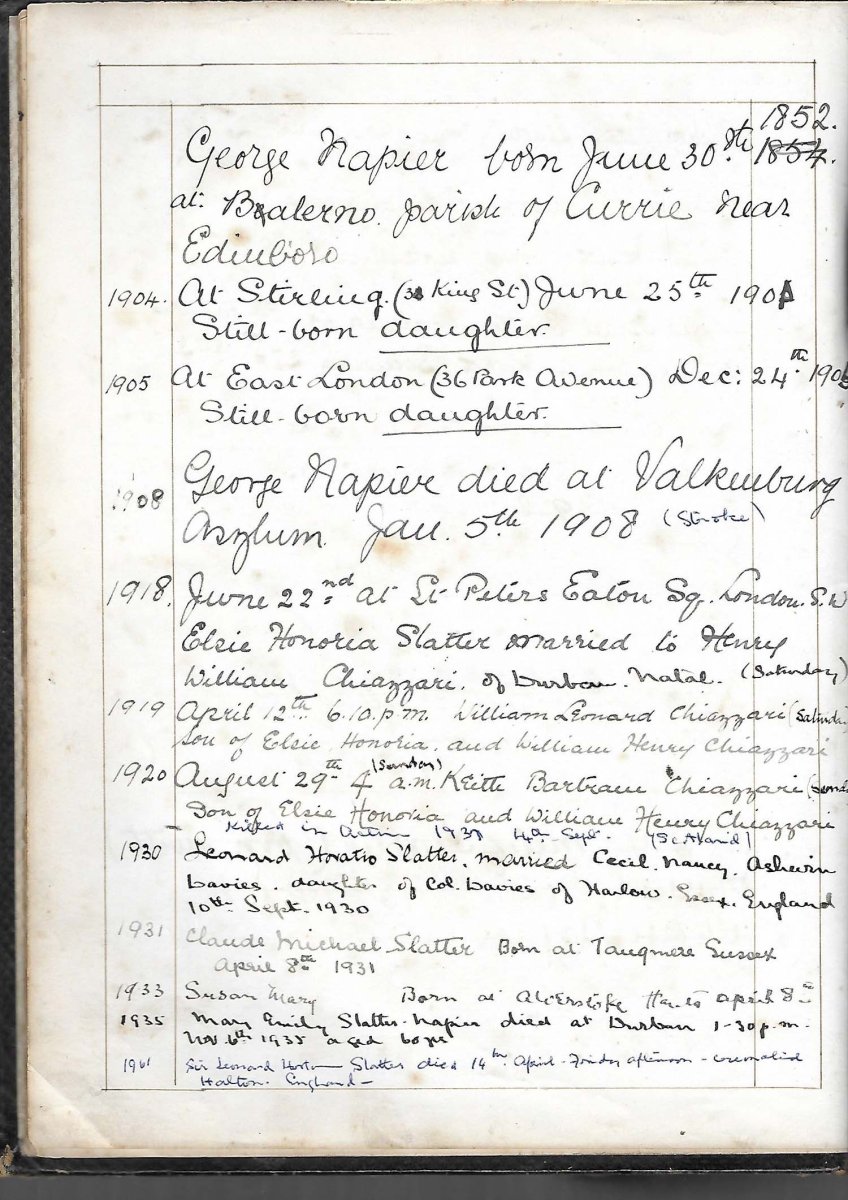 1852.
George Napier born June 30.th 1854.
at Balerno. parish of Currie near
Edinboro
1904. At Stirling. (3 King St) June 25th 190
Still-born daughter.
1905 At East London (36 Park Avenue) Dec: 24.th 190
Still-born daughter.
1908 George Napier died at Valkenburg
Asylum. Jan. 5.th 1908 (Stroke)
1918. June 22nd at St Peters Eaton Sq. London. S.W
Elsie Honoria Slatter married to Henry
William Chiazzari. of Durban. Natal. (Saturday)
1919 April 12th 6.10.p.m. William Leonard Chiazzari (Saturday
Son of Elsie Honoria. and William Henry Chiazzari
(Sunday)
1920 August 29th 4 a.m. Keith Bartram Chiazzari (Sunda
Son of Elsie Honoria and William Henry Chiazzari
Killed in Action 14th Sept.
1930 Leonard Horatio Slatter. married Cecil. Nancy. Ashwin
Davies. daughter of Col. Davies of Harlow. Essex. England
10th Sept. 1930
1931 Claude Michael Slatter Born at Tangmere Sussex
April 8th 1931
1933 Susan Mary Born at Alverstoke Hants April 8th
1935 Mary Emily Slatter-Napier died at Durban 1-30p.m.
Nov. 6th 1935 aged 60 yrs
1961 Sir Leonard Horatio Slatter died 14th April - Friday afternoon - cremated
Halton. England -